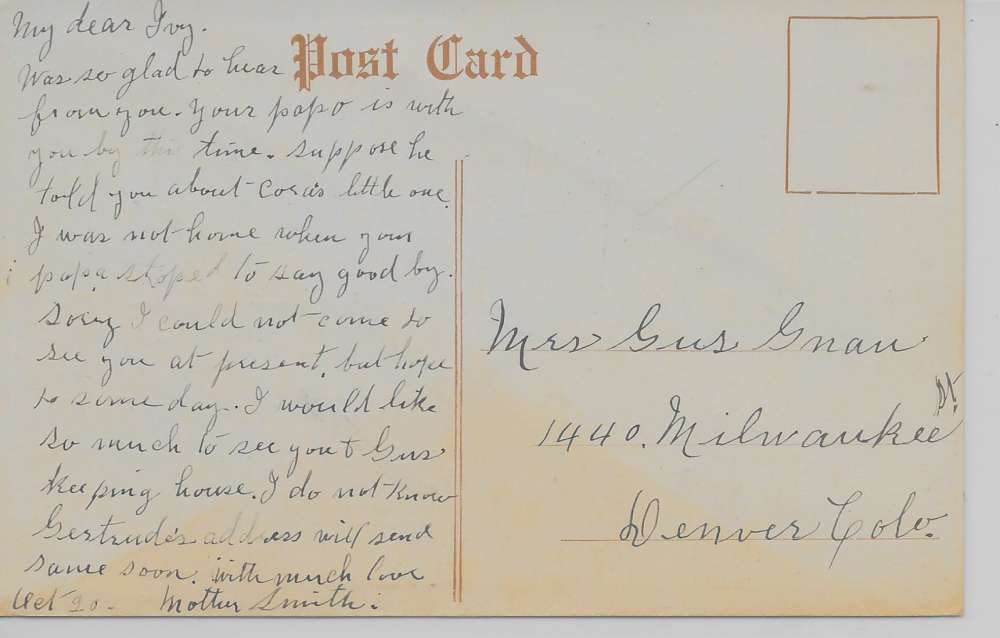 Post Card
My dear Ivy.
Was so glad to hear
from you. Your papo is with
you by this time. Suppose he
told you about Cora's little one.
I was not home when your
papa stoped to say good by.
Sorry I could not come to
see you at present, but hope
to some day. I would like
so much to see you & Gus
keeping house. I do not know
Gertrude's address will send
same soon. with much love
Oct 20. Mother Smith.
Mrs Gus Gnau
1440. Milwaukee St.
Denver Colo.